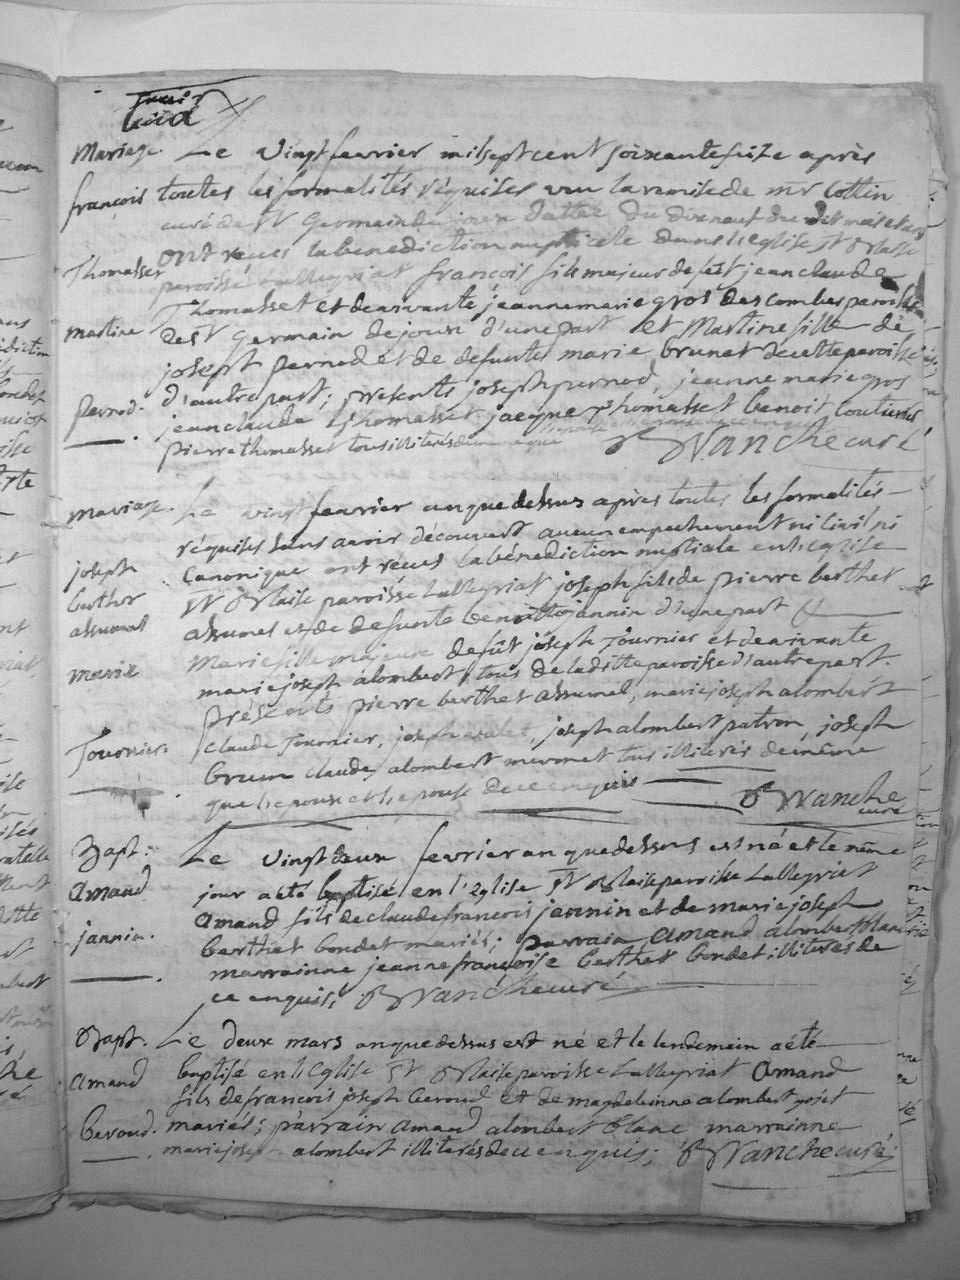 Mariage. Le vingt fevrier mil sept cent soixante seize après
françois toutes les formalités réquises vu la remise de mr Cottin
curé de St Germain de joux dattée du dix neuf du dit mois et an
Thomasset ont reçus la bénédiction nuptiale dans l'eglise St Blaise
paroisse Lalleyriat françois fils majeur de fût jean claude
Thomasset et de vivante jeanne marie gros des combes paroisse
martine de St Germain de joux d'une part et Martine fille de
joseph pernod et de defunte marie brunet de cette paroisse
pernod. d'autre part; présents joseph pernod, jeanne marie gros
jean claude Thomasset jacque Thomasset benoit couturier
pierre thomasset tous illiterés de ce enquis B Vanche curé
mariage. Le vingt fevrier an que dessus après toutes les formalités
réquises sans avoir découvert aucun empechement ni civil ni
joseph canonique ont réçus la bénédiction nuptiale en l'eglise
berthet St Blaise paroisse Lalleyriat joseph fils de pierre berthet
assumel assumel et de defunte denise jannin d'une part &
marie Marie fille majeure de fût joseph Tournier et de vivante
marie joseph alombert tous de la ditte paroisse d'autre part.
présents pierre berthet assumel, marie joseph alombert
Tournier. claude Tournier, joseph, joseph alombert patron, joseph
brun claude alombert tous illiterés de même
que l'epoux et l'epouse de ce enquis B Vanche
curé
Bapt: Le vingt deux fevrier an que dessus est né et le même
amand jour a été baptisé en l'eglise St Blaise paroisse Lalleyriat
amand fils de claude françois jannin et de marie joseph
jannin. berthet bondet mariés; parrain amand alombert blanc
marrainne jeanne françoise berthet bondet illiterés de
ce enquis; B Vanche curé
Bapt. Le deux mars an que dessus est né et le lendemain a été
amand baptisé en l'eglise St Blaise paroisse Lalleyriat amand
fils de françois joseph beroud et de magdelainne alombert goget
beroud. mariés; parrain amand alombert blanc marrainne
marie joseph alombert illiterés de ce enquis; B Vanche curé